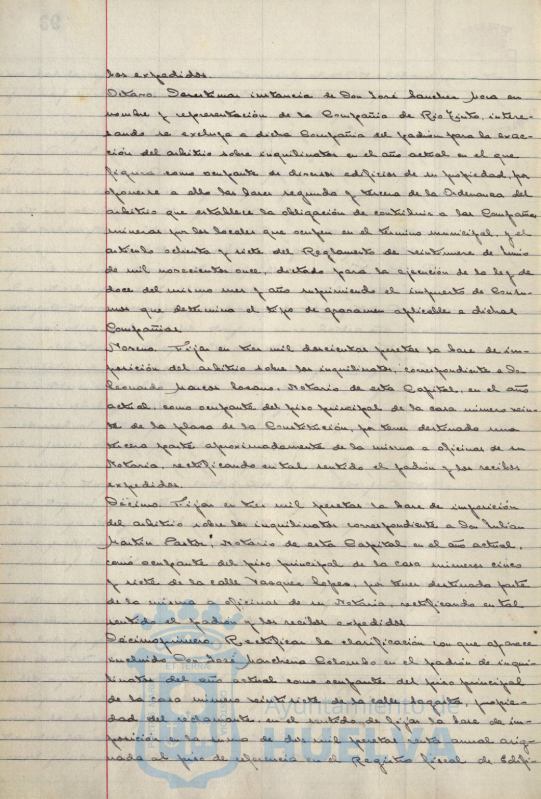 los expedidos.
Octavo. Desestimar instancia de Don José Sanchez Mora en
nombre y representación de la Compañía de Rio Tinto, intere-
sando se excluya a dicha Compañia del padron para la exac-
ción del arbitrio sobre inquilinatos en el año actual en el que
figura como ocupante de diversos edificios de su propiedad, por
oponerse a ello las bases segunda y tercera de la Ordenanza del
arbitrio que establece la obligación de contribuir a las Compañias
mineras por los locales que ocupen en el término municipal, y el
artículo ochenta y siete del Reglamento de veintinueve de Junio
de mil novecientos once, dictado para la ejecución de la ley de
doce del mismo mes y año suprimiendo el impuesto de Consu-
mos que determina el tipo de gravamen aplicable a dichas
Compañias.
Noveno. Fijar en tres mil doscientas pesetas la base de im-
posición del arbitrio sobre los inquilinatos, correspondiente a Do
Leonardo Marcos Lozano, Notario de esta Capital, en el año
actual, como ocupante del piso principal de la casa número vein-
te de la plaza de la Constitución, por tener destinado una
tercera parte aproximadamente de la misma a oficinas de su
Notaria, rectificando en tal sentido el padrón y los recibos
expedidos.
Décimo. Fijar en tres mil pesetas la base de imposición
del arbitrio sobre los inquilinatos correspondiente a Don Julian
Martin Pastor, Notario de esta Capital en el año actual,
como ocupante del piso principal de la casa números cinco
y siete de la calle Vazquez Lopez, por tener destinada parte
de la misma a oficinas de su Notaria, rectificando en tal
sentido el padrón y los recibos expedidos.
Décimoprimero. Rectificar la clasificación con que aparece
incluido Don José Marchena Colombo en el padrón de inqui-
linatos del año actual como ocupante del piso principal
de la casa número veintisiete de la calle Sagasta, propie-
dad del reclamante, en el sentido de fijar la base de im-
posición en la suma de dos mil pesetas renta anual asig-
nada al piso de referencia en el Registro fiscal de Edifi-
Ayuntamiento de
HUELVA